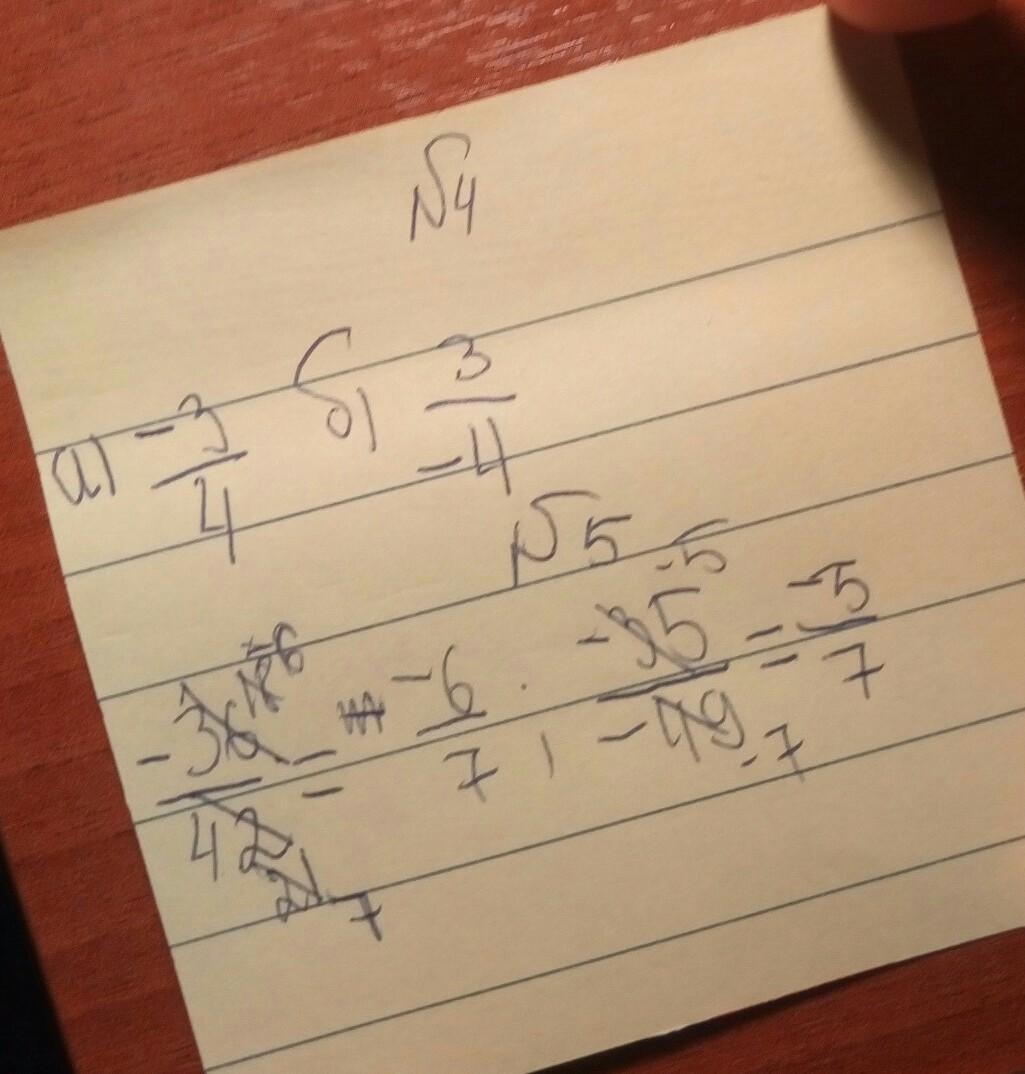 №4
а) -3/4 б) 3/-4
№5
-36/42 = -6/7, -35/-49 = -5/7